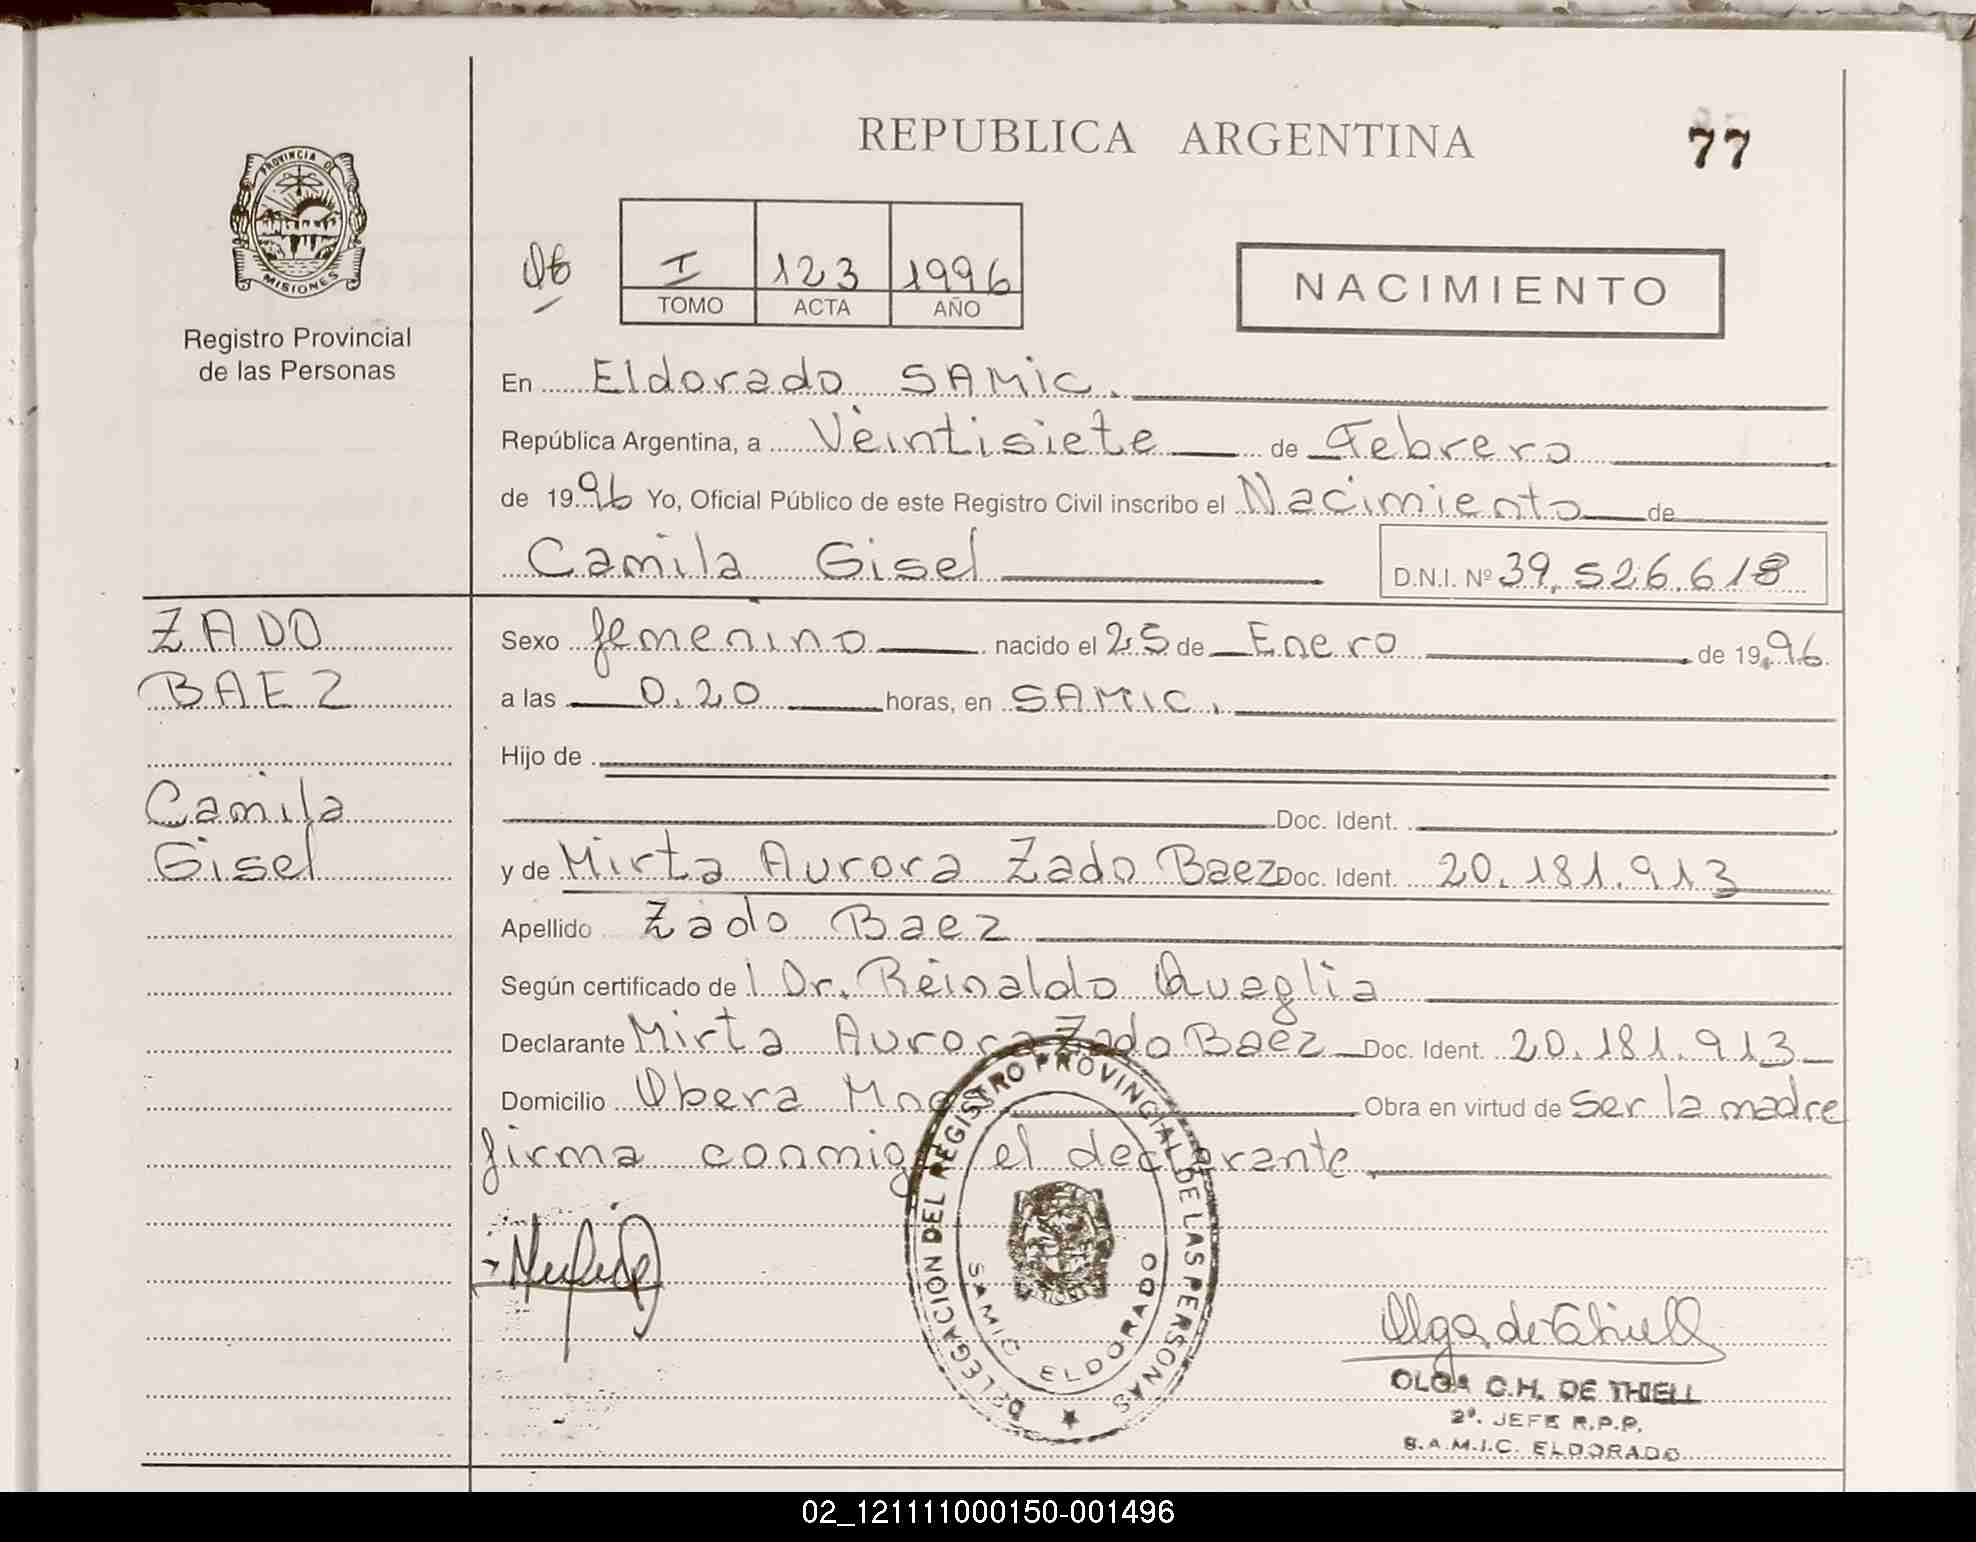 REPUBLICA ARGENTINA
77
PROVINCIA DE
MISIONES
Registro Provincial
de las Personas
I 123 1996
TOMO ACTA AÑO
NACIMIENTO
En Eldorado SAMIC.
República Argentina, a Veintisiete de Febrero
de 1996 Yo, Oficial Público de este Registro Civil inscribo el Nacimiento de
Camila Gisel D.N.I. Nº 39.526.618
ZADO
BAEZ
Camila
Gisel
Sexo femenino nacido el 25 de Enero de 1996
a las 0.20 horas, en SAMIC.
Hijo de
Doc. Ident.
y de Mirta Aurora Zado Baez Doc. Ident. 20.181.913
Apellido Zado Baez
Según certificado de l Dr. Reinaldo Quaglia
Declarante Mirta Aurora Zado Baez Doc. Ident. 20.181.913
Domicilio Obera Mnes Obra en virtud de ser la madre
firma conmigo el declarante.
DELEGACION DEL REGISTRO PROVINCIAL DE LAS PERSONAS
SAMIC ELDORADO
Olga de Thiell
OLGA C.H. DE THIELL
2º. JEFE R.P.P.
S.A.M.I.C. ELDORADO
02_121111000150-001496